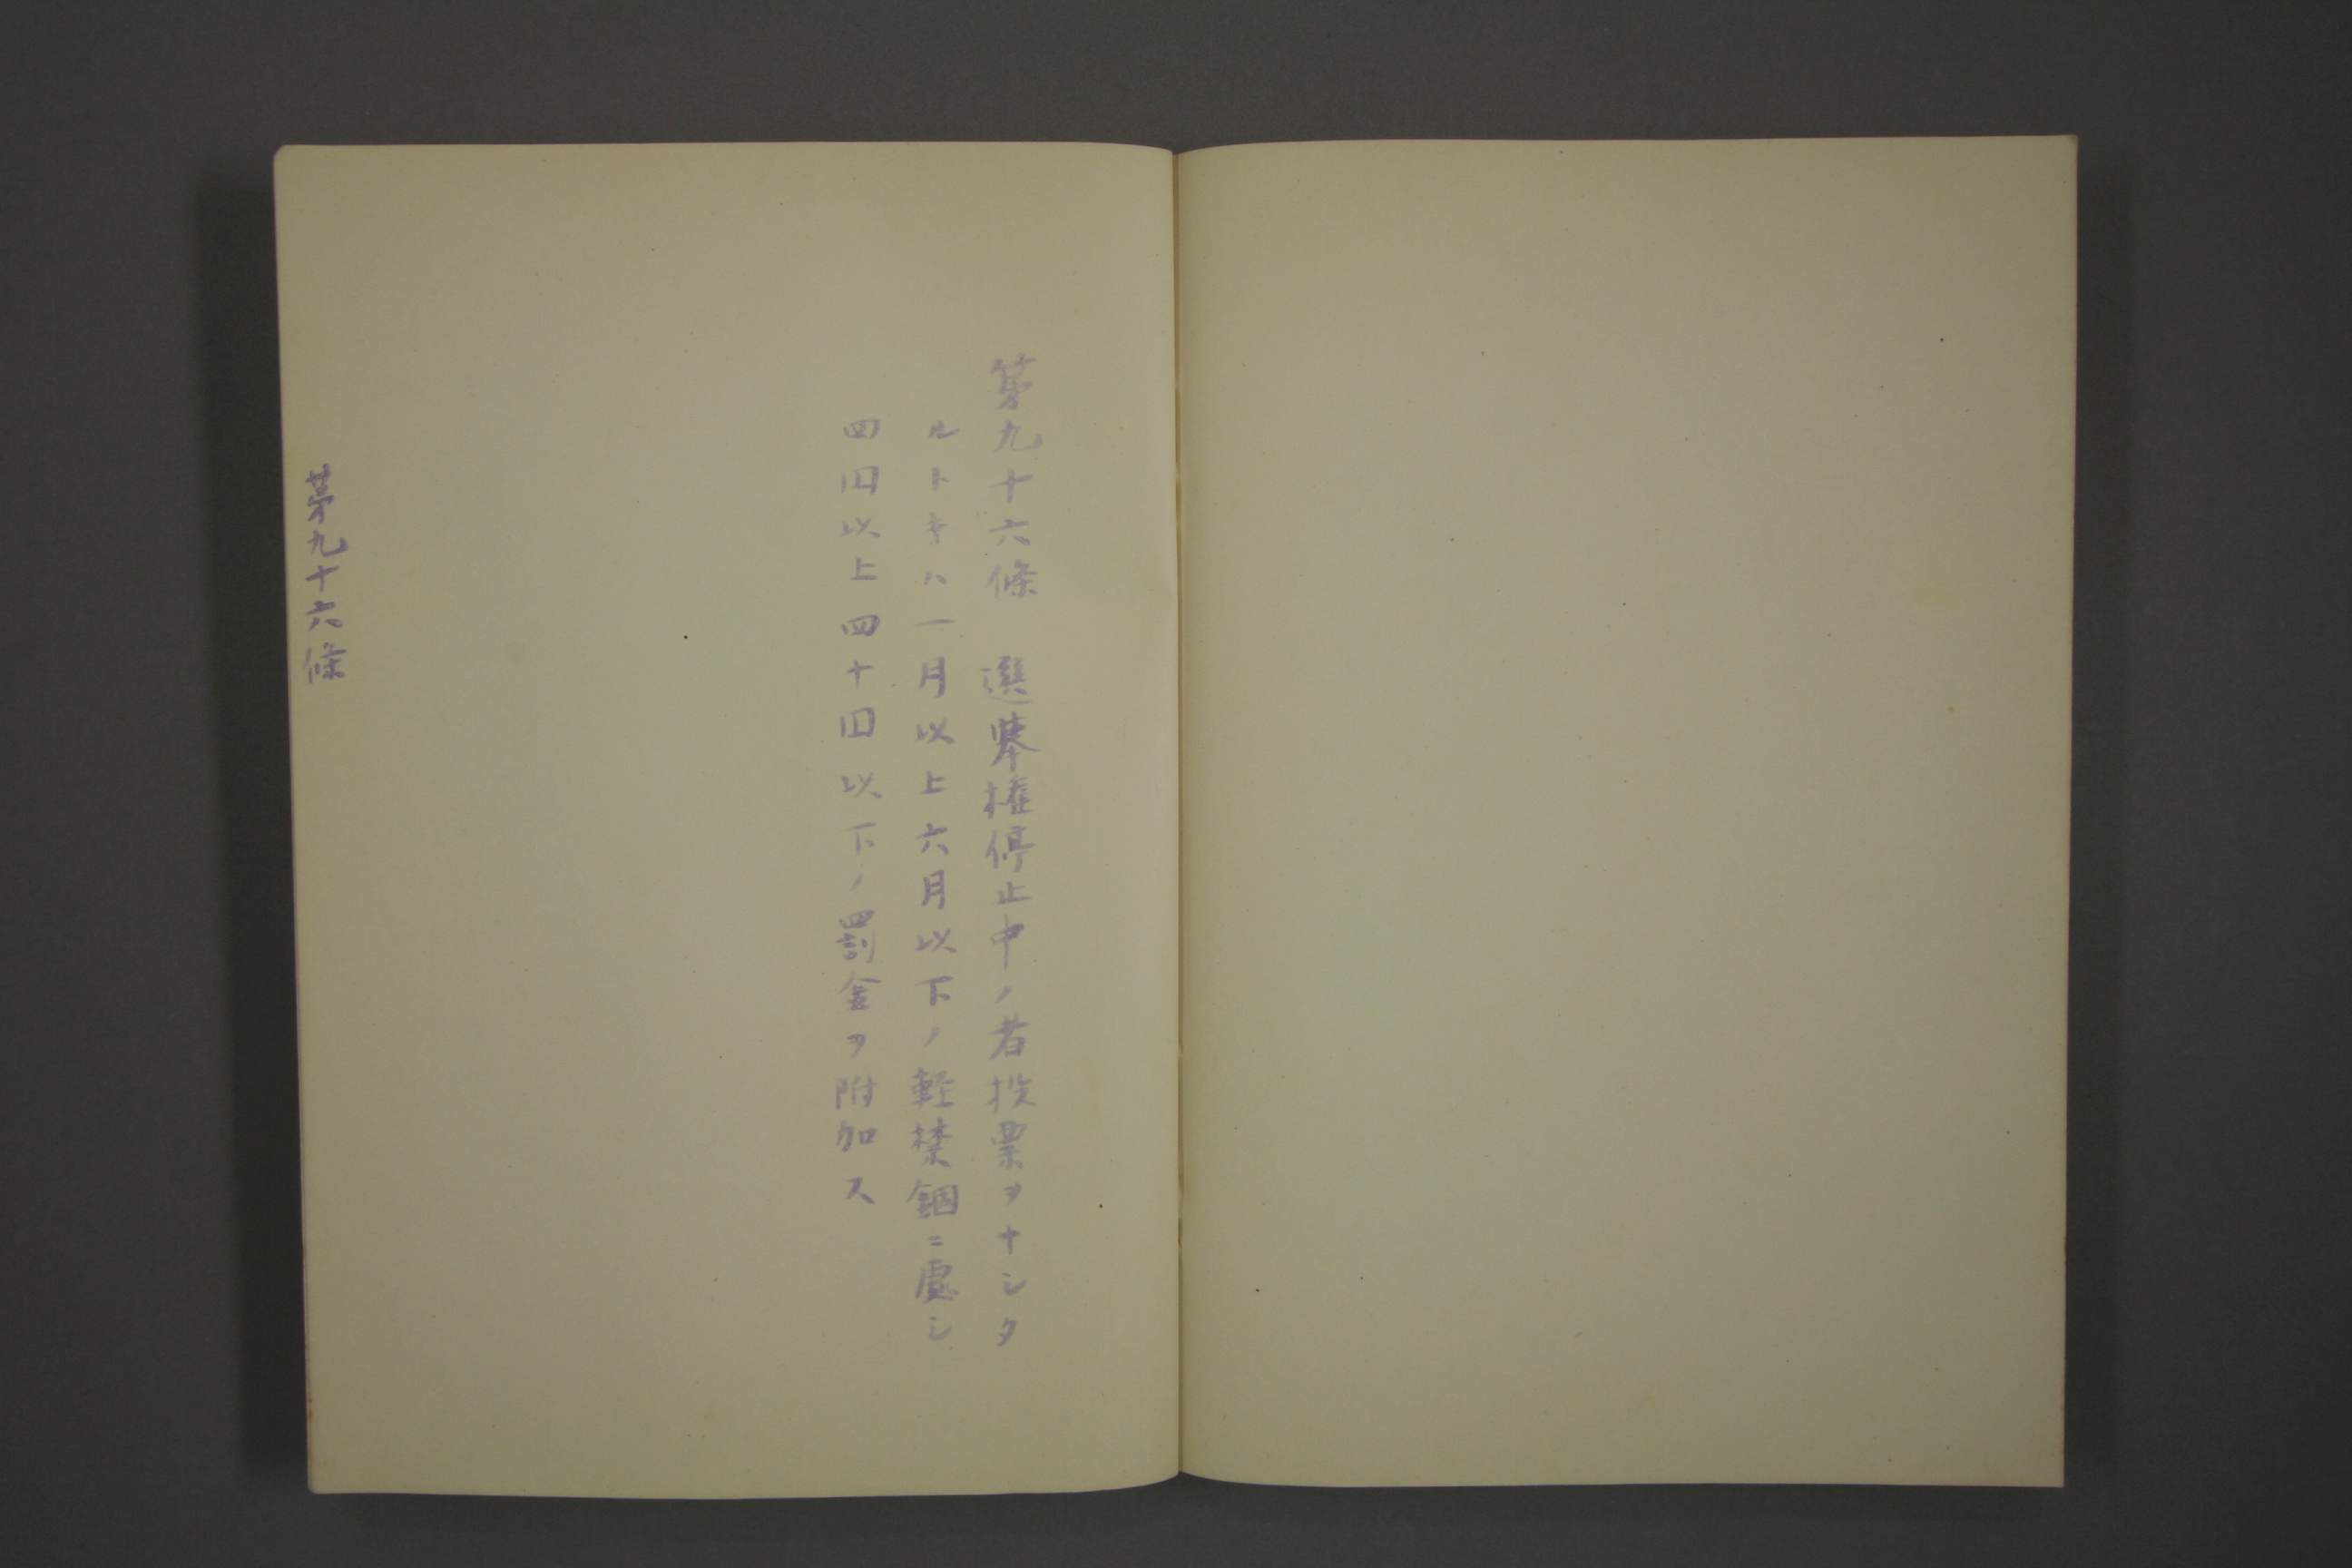 第九十六條　選擧權停止中ノ者投票ヲナシタ
ルトキハ一月以上六月以下ノ軽禁錮ニ處シ
四円以上四十円以下ノ罰金ヲ附加ス
第九十六條